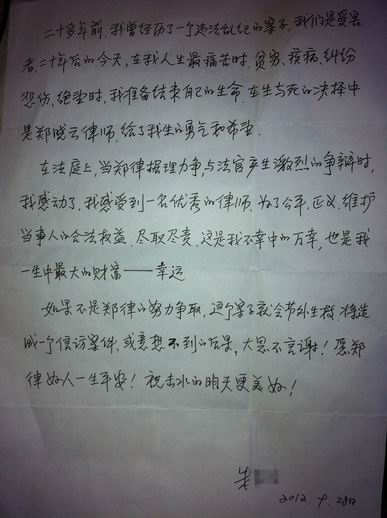 二十多年前,我曾经历了一个违法乱纪的案子,我们是受害
者,二十年后的今天,在我人生最痛苦时,贫穷、疾病、纠纷
悲伤、绝望时,我准备结束自己的生命,在生与死的决择中
是郑晓云律师,给了我生的勇气和希望.
在法庭上,当郑律据理力争,与法官产生激烈的争辩时,
我感动了,我感受到一名优秀的律师,为了公平、正义、维护
当事人的合法权益,尽职尽责,这是我不幸中的万幸,也是我
一生中最大的财富——幸运
如果不是郑律的努力争取,这个案子就会节外生枝,将造
成一个信访案件,或意想不到的后果,大恩不言谢!愿郑
律好人一生平安!祝 的明天更美好!
朱
2012.9.28日